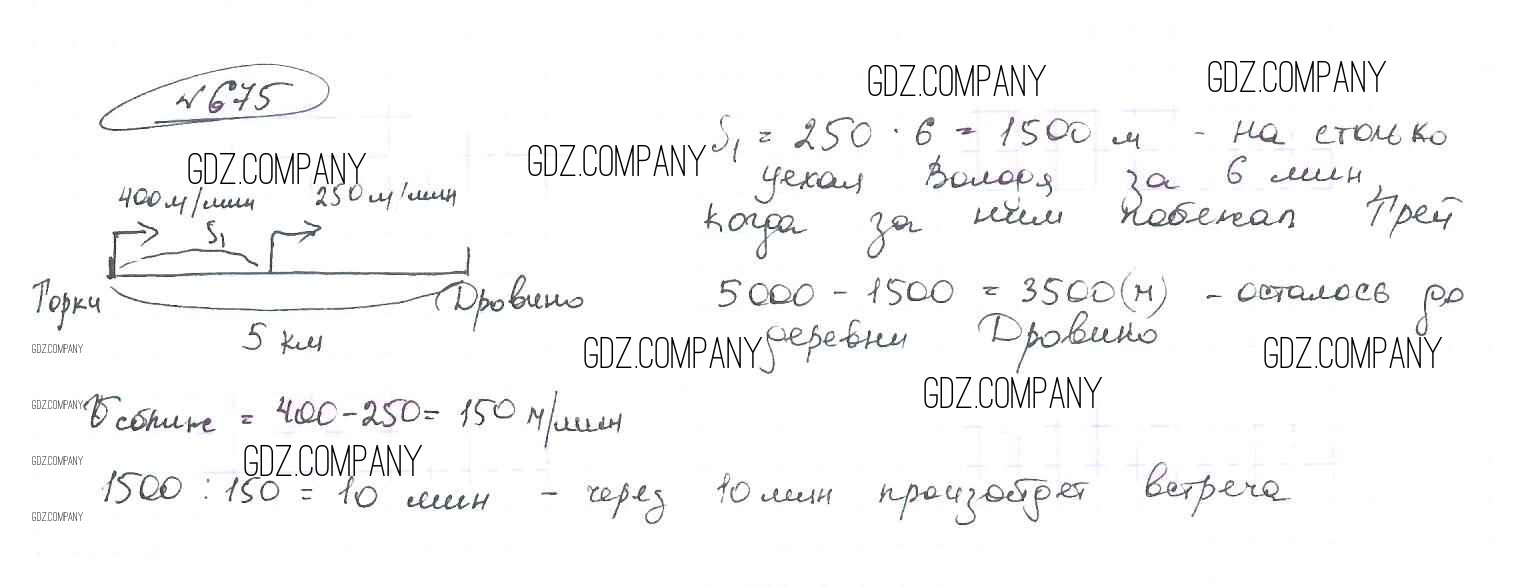 №675
GDZ.COMPANY
GDZ.COMPANY
GDZ.COMPANY
GDZ.COMPANY
S₁ = 250 · 6 = 1500 м - на столько
уехал Володя за 6 мин,
когда за ним побежал Грей
400м/мин 250м/мин
S₁
Горки
Дровино
5 км
5000 - 1500 = 3500(м) - осталось до
деревни Дровино
GDZ.COMPANY
GDZ.COMPANY
GDZ.COMPANY
GDZ.COMPANY
GDZ.COMPANY
υ сближ = 400-250= 150 м/мин
GDZ.COMPANY
GDZ.COMPANY
1500 : 150 = 10 мин - через 10 мин произойдет встреча
GDZ.COMPANY